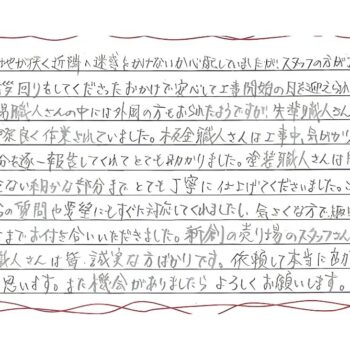 やや狭く近隣へ迷惑をかけないか心配していましたが、スタッフの方が
挨拶回りをしてくださったおかげで安心して工事開始の日を迎えられ
場職人さんの中には外国の方もおられたようですが、先輩職人さん
良く作業されていました。板金職人さんは工事中、気がかり
分を逐一報告してくれてとても助かりました。塗装職人さんは
ない細かな部分までとても丁寧に仕上げてくださいました。
の質問や要望にもすぐに対応してくれましたし、気さくな方で
までお付き合いいただきました。新創の売り場のスタッフさん
職人さんは皆、誠実な方ばかりです。依頼して本当に良か
思います。また機会がありましたらよろしくお願いします。